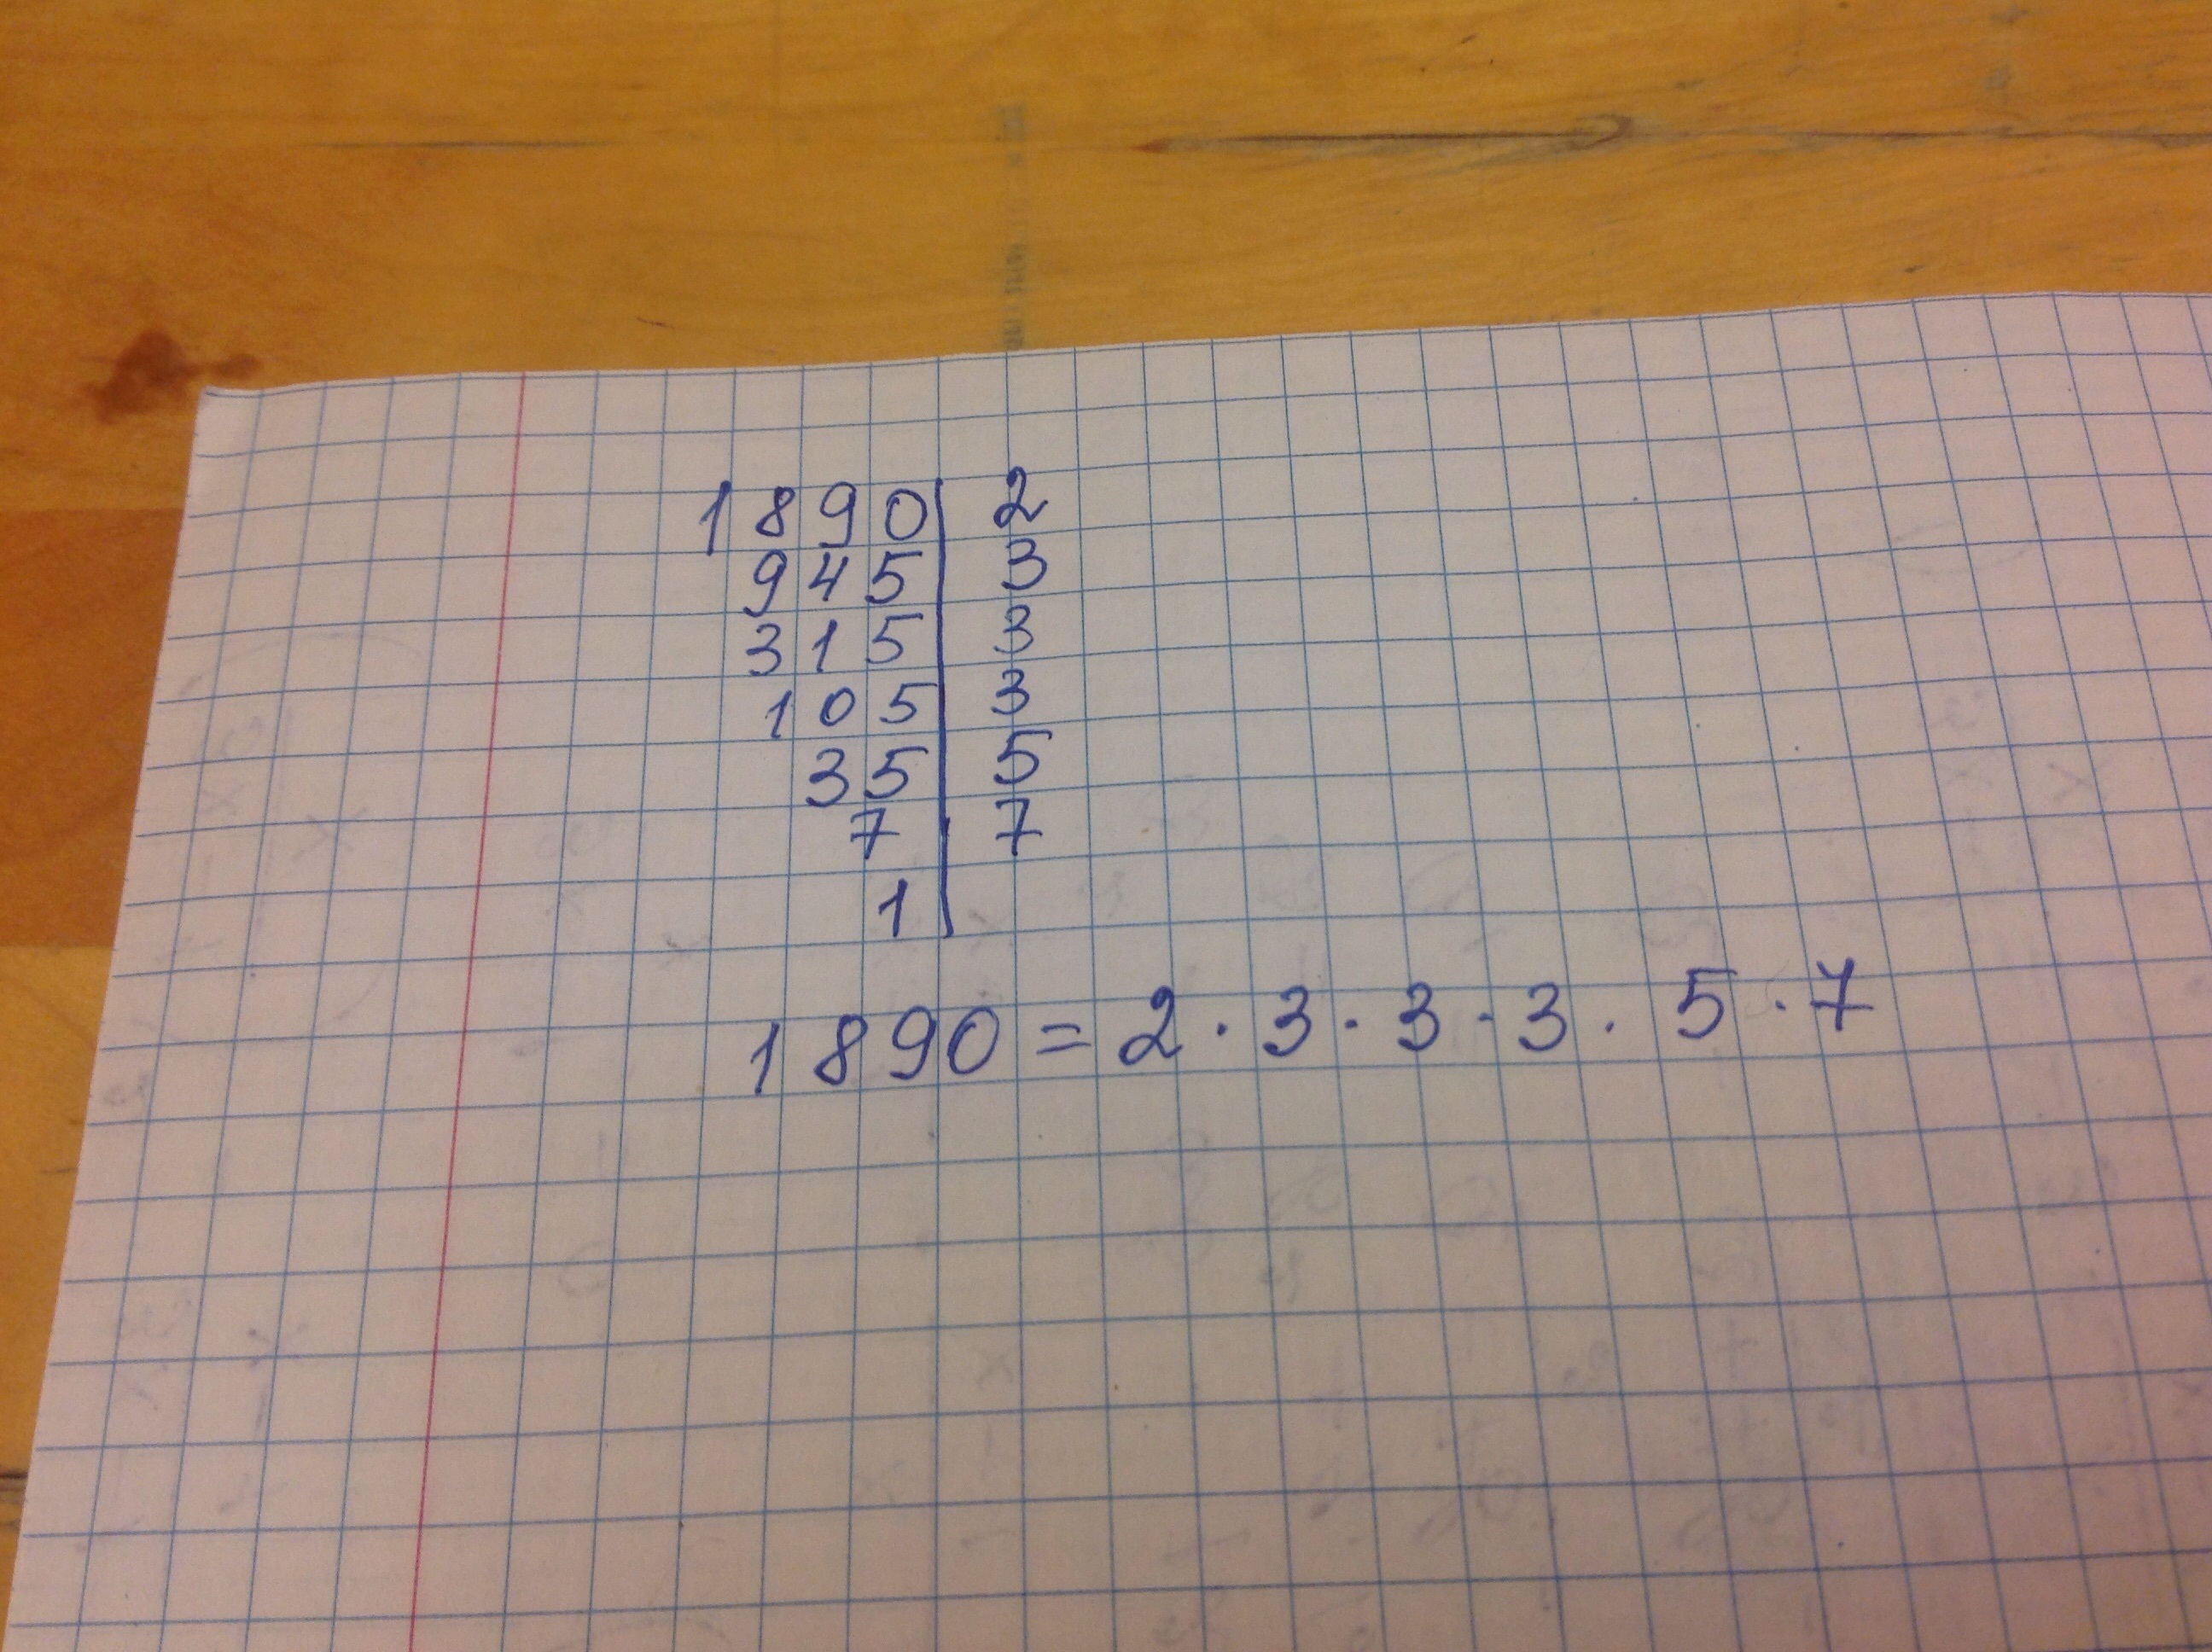 1890 | 2
945 | 3
315 | 3
105 | 3
35 | 5
7 | 7
1 |
1890 = 2 · 3 · 3 · 3 · 5 · 7